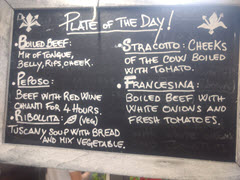 PLATE OF THE DAY!
• BOILED BEEF:
MIX OF TONGUE,
BELLY, RIPS, CHEEK.
• PEPOSO:
BEEF WITH RED WINE
CHIANTI FOR 4 HOURS.
• RIBOLLITA: (VEG)
TUSCANY SOUP WITH BREAD
AND MIX VEGETABLE.
• STRACOTTO: CHEEKS
OF THE COW BOILED
WITH TOMATO.
• FRANCESINA:
BOILED BEEF WITH
WHITE ONIONS AND
FRESH TOMATOES.